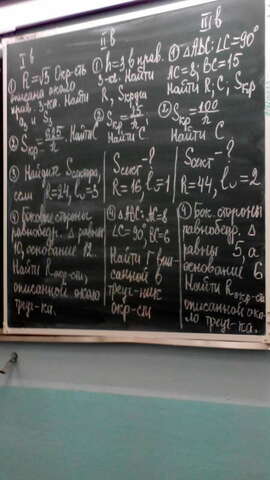 I в
① R=√3 Окр-сть
описана около
прав. 3-ка. Найти
a₃ и S₃
② Sкр= 625/π. Найти С
③ Найдите Sсектора,
если R=24, l◡=3
④ Боковые стороны
равнобедр. Δ равны
10, основание 12.
Найти Rокр-сти,
описанной около
треуг-ка.
II в
① h=3 в прав.
3-ке. Найти
R, Sкруга
② Sкр= /π
Найти С
Sсект-?
R=16, l◡=1
④ ΔABC: AC=8
∠C=90°, BC=6
Найти r впи-
санной в
треуг-ник
окр-сти
III в
① ΔABC: ∠C=90°
AC=8; BC=15
Найти R; C; Sкр
② Sкр= 100/π
Найти С
Sсект-?
R=44, l◡=2
④ Бок. стороны
равнобедр. Δ
равны 5, а
основание 6
Найти Rокр-сти
описанной око-
ло треуг-ка.